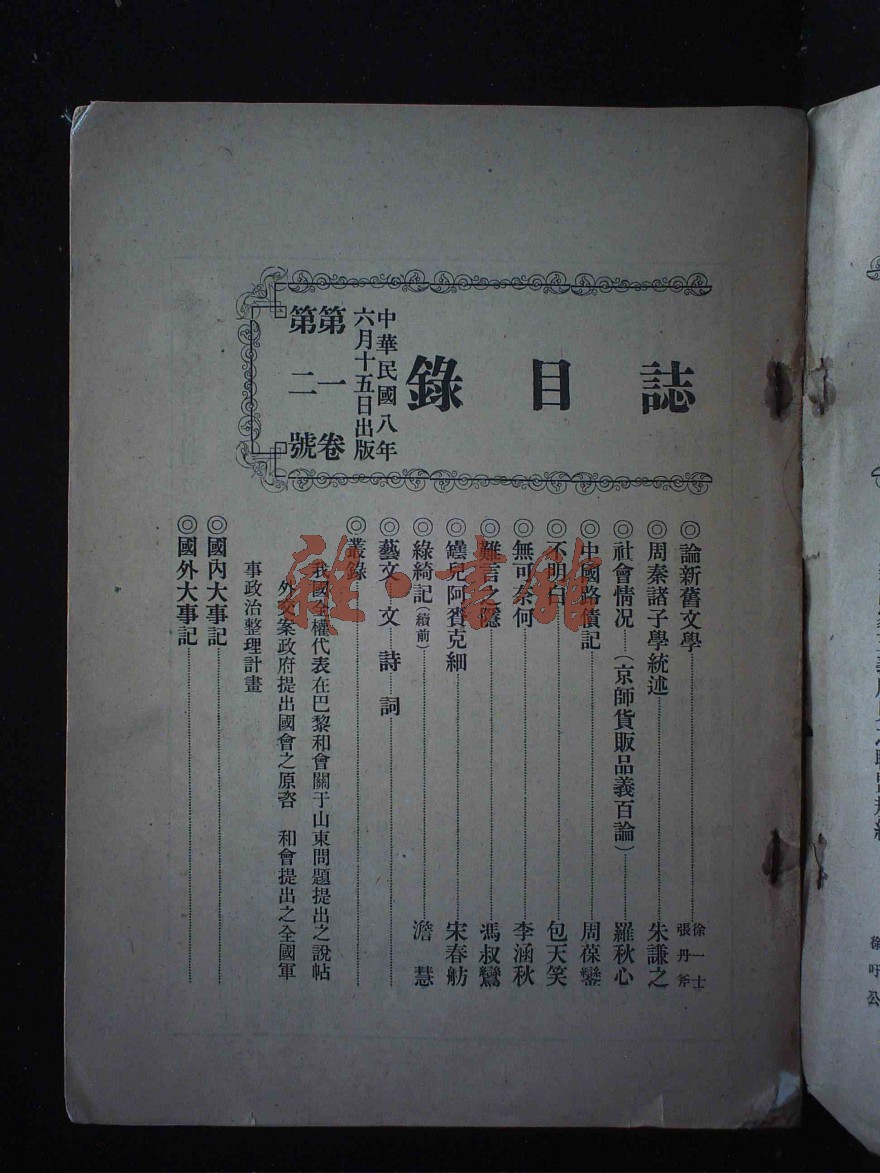 誌目錄
中華民國八年
六月十五日出版
第一卷
第二號
◎論新舊文學 徐一士 張丹斧
◎周秦諸子學統述 朱謙之
◎社會情況(京師貨販品義百論) 羅秋心
◎中國路債記 周葆鑾
◎不明白 包天笑
◎無可奈何 李涵秋
◎難言之隱 馮叔鸞
◎罎兒阿賚克細 宋春舫
◎綠綺記(續前) 澹慧
◎藝文 文 詩 詞
◎叢錄
我國全權代表在巴黎和會關于山東問題提出之說帖
外交案政府提出國會之原咨 和會提出之全國軍
事政治整理計畫
◎國內大事記
◎國外大事記
雜·書館
徐吁公